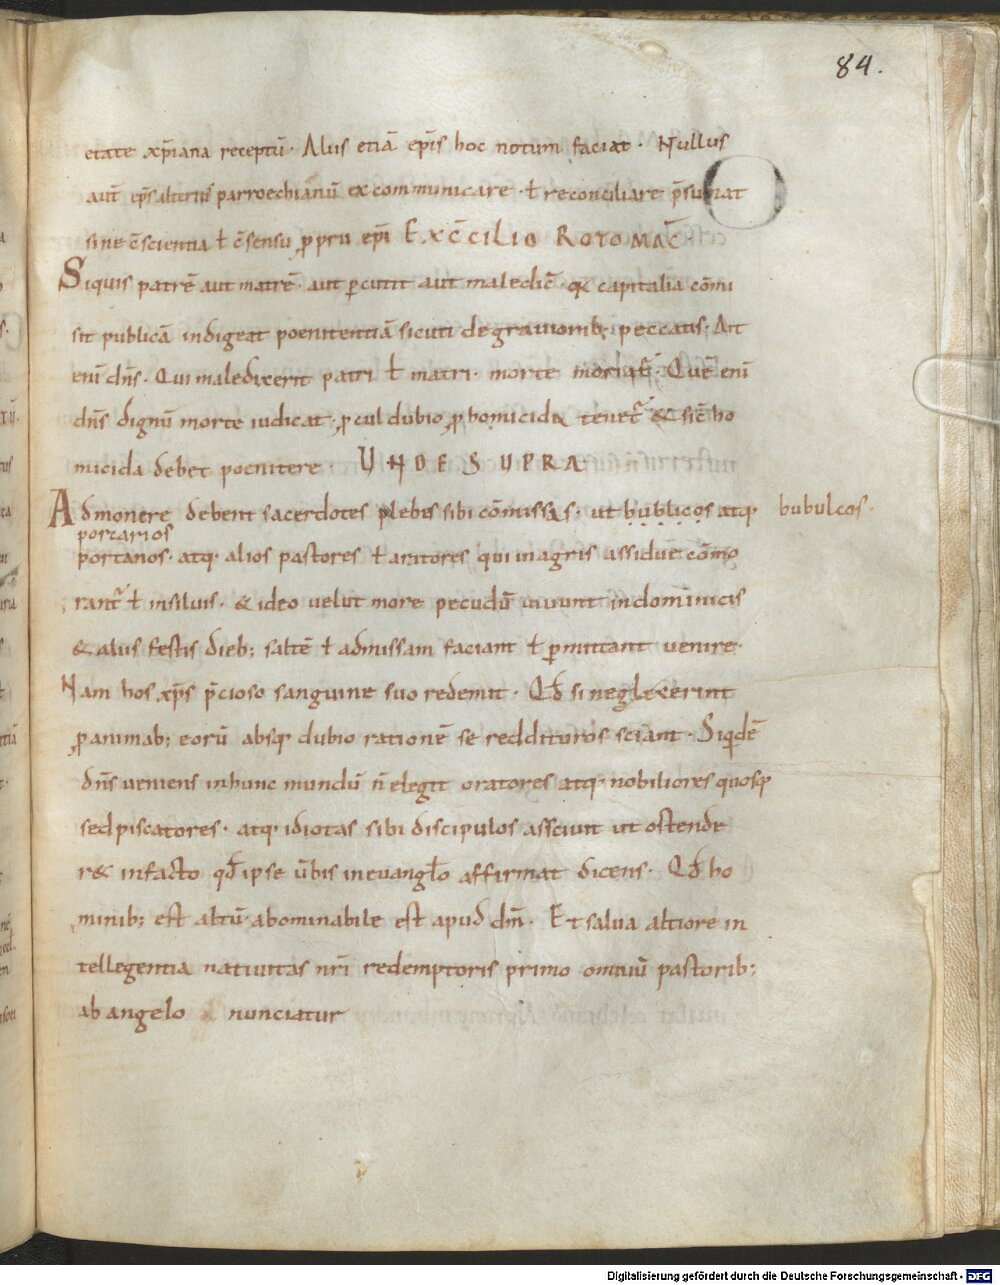 84.
etate xp̄iana receptū. Aliis etiā ep̄is hoc notum faciat. Nullus
aut̄ ep̄s alterius parroechianū excommunicare ł reconciliare p̄sumat
sine c̄scientia ł c̄sensu ꝓprii ep̄i EX C̄CILIO ROTOMAC̄.
Siquis patrē aut matrē aut ꝑcutit aut maledic̄ & capitalia cōmi
sit publicā indigeat poenitentiā sicuti de grauiorib; peccatis. Ait
enī dn̄s. Qui maledixerit patri ł matri morte
Quē enī
dn̄s dignū morte iudicat ꝓcul dubio ꝓ homicida tenet᷑ & sic̄ ho
micida debet poenitere. UNDE SUPRA
Admonere debent sacerdotes plebes sibi cōmissas. ut bublicos atq; bubulcos.
porcarios
portarios. atq; alios pastores ł aratores qui in agris assidue cōmo
rant᷑ ł in siluis. & ideo uelut more pecudū uiuunt in dominicis
& aliis festis dieb; saltē ł ad missam faciant ł ꝑmittant uenire.
Nam hos xp̄s p̄cioso sanguine suo redemit. Qđ si neglexerint
ꝓ animab; eorū absq; dubio rationē se reddituros sciant. Siqdē
dn̄s ueniens in hunc mundū n̄ elegit oratores atq; nobiliores quosq;
sed piscatores. atq; idiotas sibi discipulos assciuit ut ostende
r& in facto qđ ipse ūbis in euanglo affirmat dicens. Qđ ho
minib; est altū abominabile est apud dm̄. Et salua altiore in
tellegentia natiuitas nr̄i redemptoris primo omniū pastorib;
ab angelo nunciatur
Digitalisierung gefördert durch die Deutsche Forschungsgemeinschaft - DFG